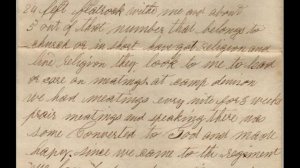 24 left flatrock with me and about
5 out of that number that belongs to
church or in short have got religion and
live religion they look to me to lead
or care on meatings at camp
we had meatings every nite for 3 weeks
prair meatings and speaking there was
some converted to God and made
happy since we came to the regement